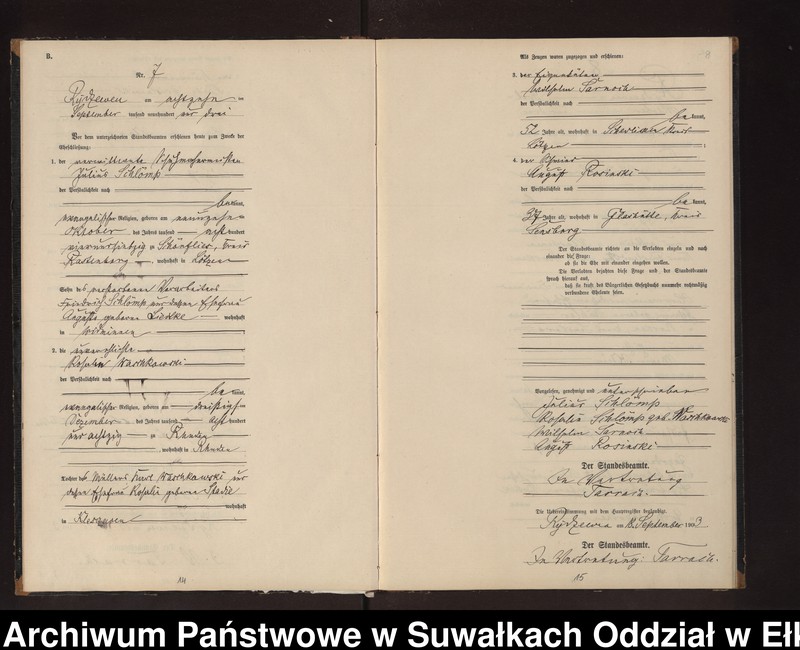 8.
Nr. 7
Rydzewen am achtzehnten
September tausend neunhundert und drei
Vor dem unterzeichneten Standesbeamten erschienen heute zum Zwecke der
Eheschließung:
1. der verwittwete Schuhmachermeister
Julius Schlomp
der Persönlichkeit nach
be kannt,
evangelischer Religion, geboren am neunzehnten
Oktober des Jahres tausend acht hundert
vierundsiebzig zu Kreis
Rastenburg, wohnhaft in Lötzen
Sohn des verstorbenen
Friedrich Schlomp und dessen Ehefrau
Auguste geborene wohnhaft
in Widminnen
2. die unverehelichte
Rosalie Waschkowski
der Persönlichkeit nach
be kannt,
evangelischer Religion, geboren am dreißigsten
Dezember des Jahres tausend acht hundert
und achtzig zu
wohnhaft in
Tochter des Müllers Karl Waschkowski und
dessen Ehefrau Rosalie geborene
wohnhaft
in
14
Als Zeugen waren zugezogen und erschienen:
3. der Eigenkätner
Wilhelm
der Persönlichkeit nach
be kannt,
52 Jahre alt, wohnhaft in Kreis
Lötzen;
4. der Schmied
August Rosinski
der Persönlichkeit nach
be kannt,
37 Jahre alt, wohnhaft in Kreis
Sensburg
Der Standesbeamte richtete an die Verlobten einzeln und nach
einander die Frage:
ob sie die Ehe mit einander eingehen wollen.
Die Verlobten bejahten diese Frage und der Standesbeamte
sprach hierauf aus,
daß sie kraft des Bürgerlichen Gesetzbuchs nunmehr rechtmäßig
verbundene Eheleute seien.
Vorgelesen, genehmigt und unterschrieben
Julius Schlomp
Rosalie Schlomp geb. Waschkowski
Wilhelm
August Rosinski
Der Standesbeamte.
In Vertretung
Tarrach.
Die Uebereinstimmung mit dem Hauptregister beglaubigt.
Rydzewen am 18. September 1903
Der Standesbeamte.
In Vertretung: Tarrach.
15
Archiwum Państwowe w Suwałkach Oddział w Ełk